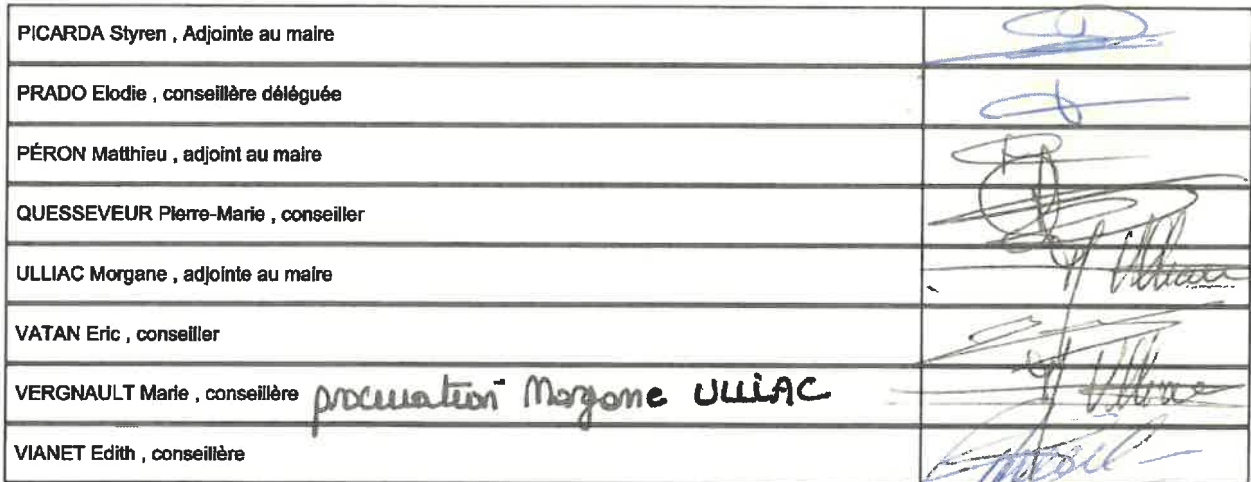 PICARDA Styren , Adjointe au maire
PRADO Elodie , conseillère déléguée
PÉRON Matthieu , adjoint au maire
QUESSEVEUR Pierre-Marie , conseiller
ULLIAC Morgane , adjointe au maire
VATAN Eric , conseiller
VERGNAULT Marie , conseillère procuration Morgane ULLiAC
VIANET Edith , conseillère